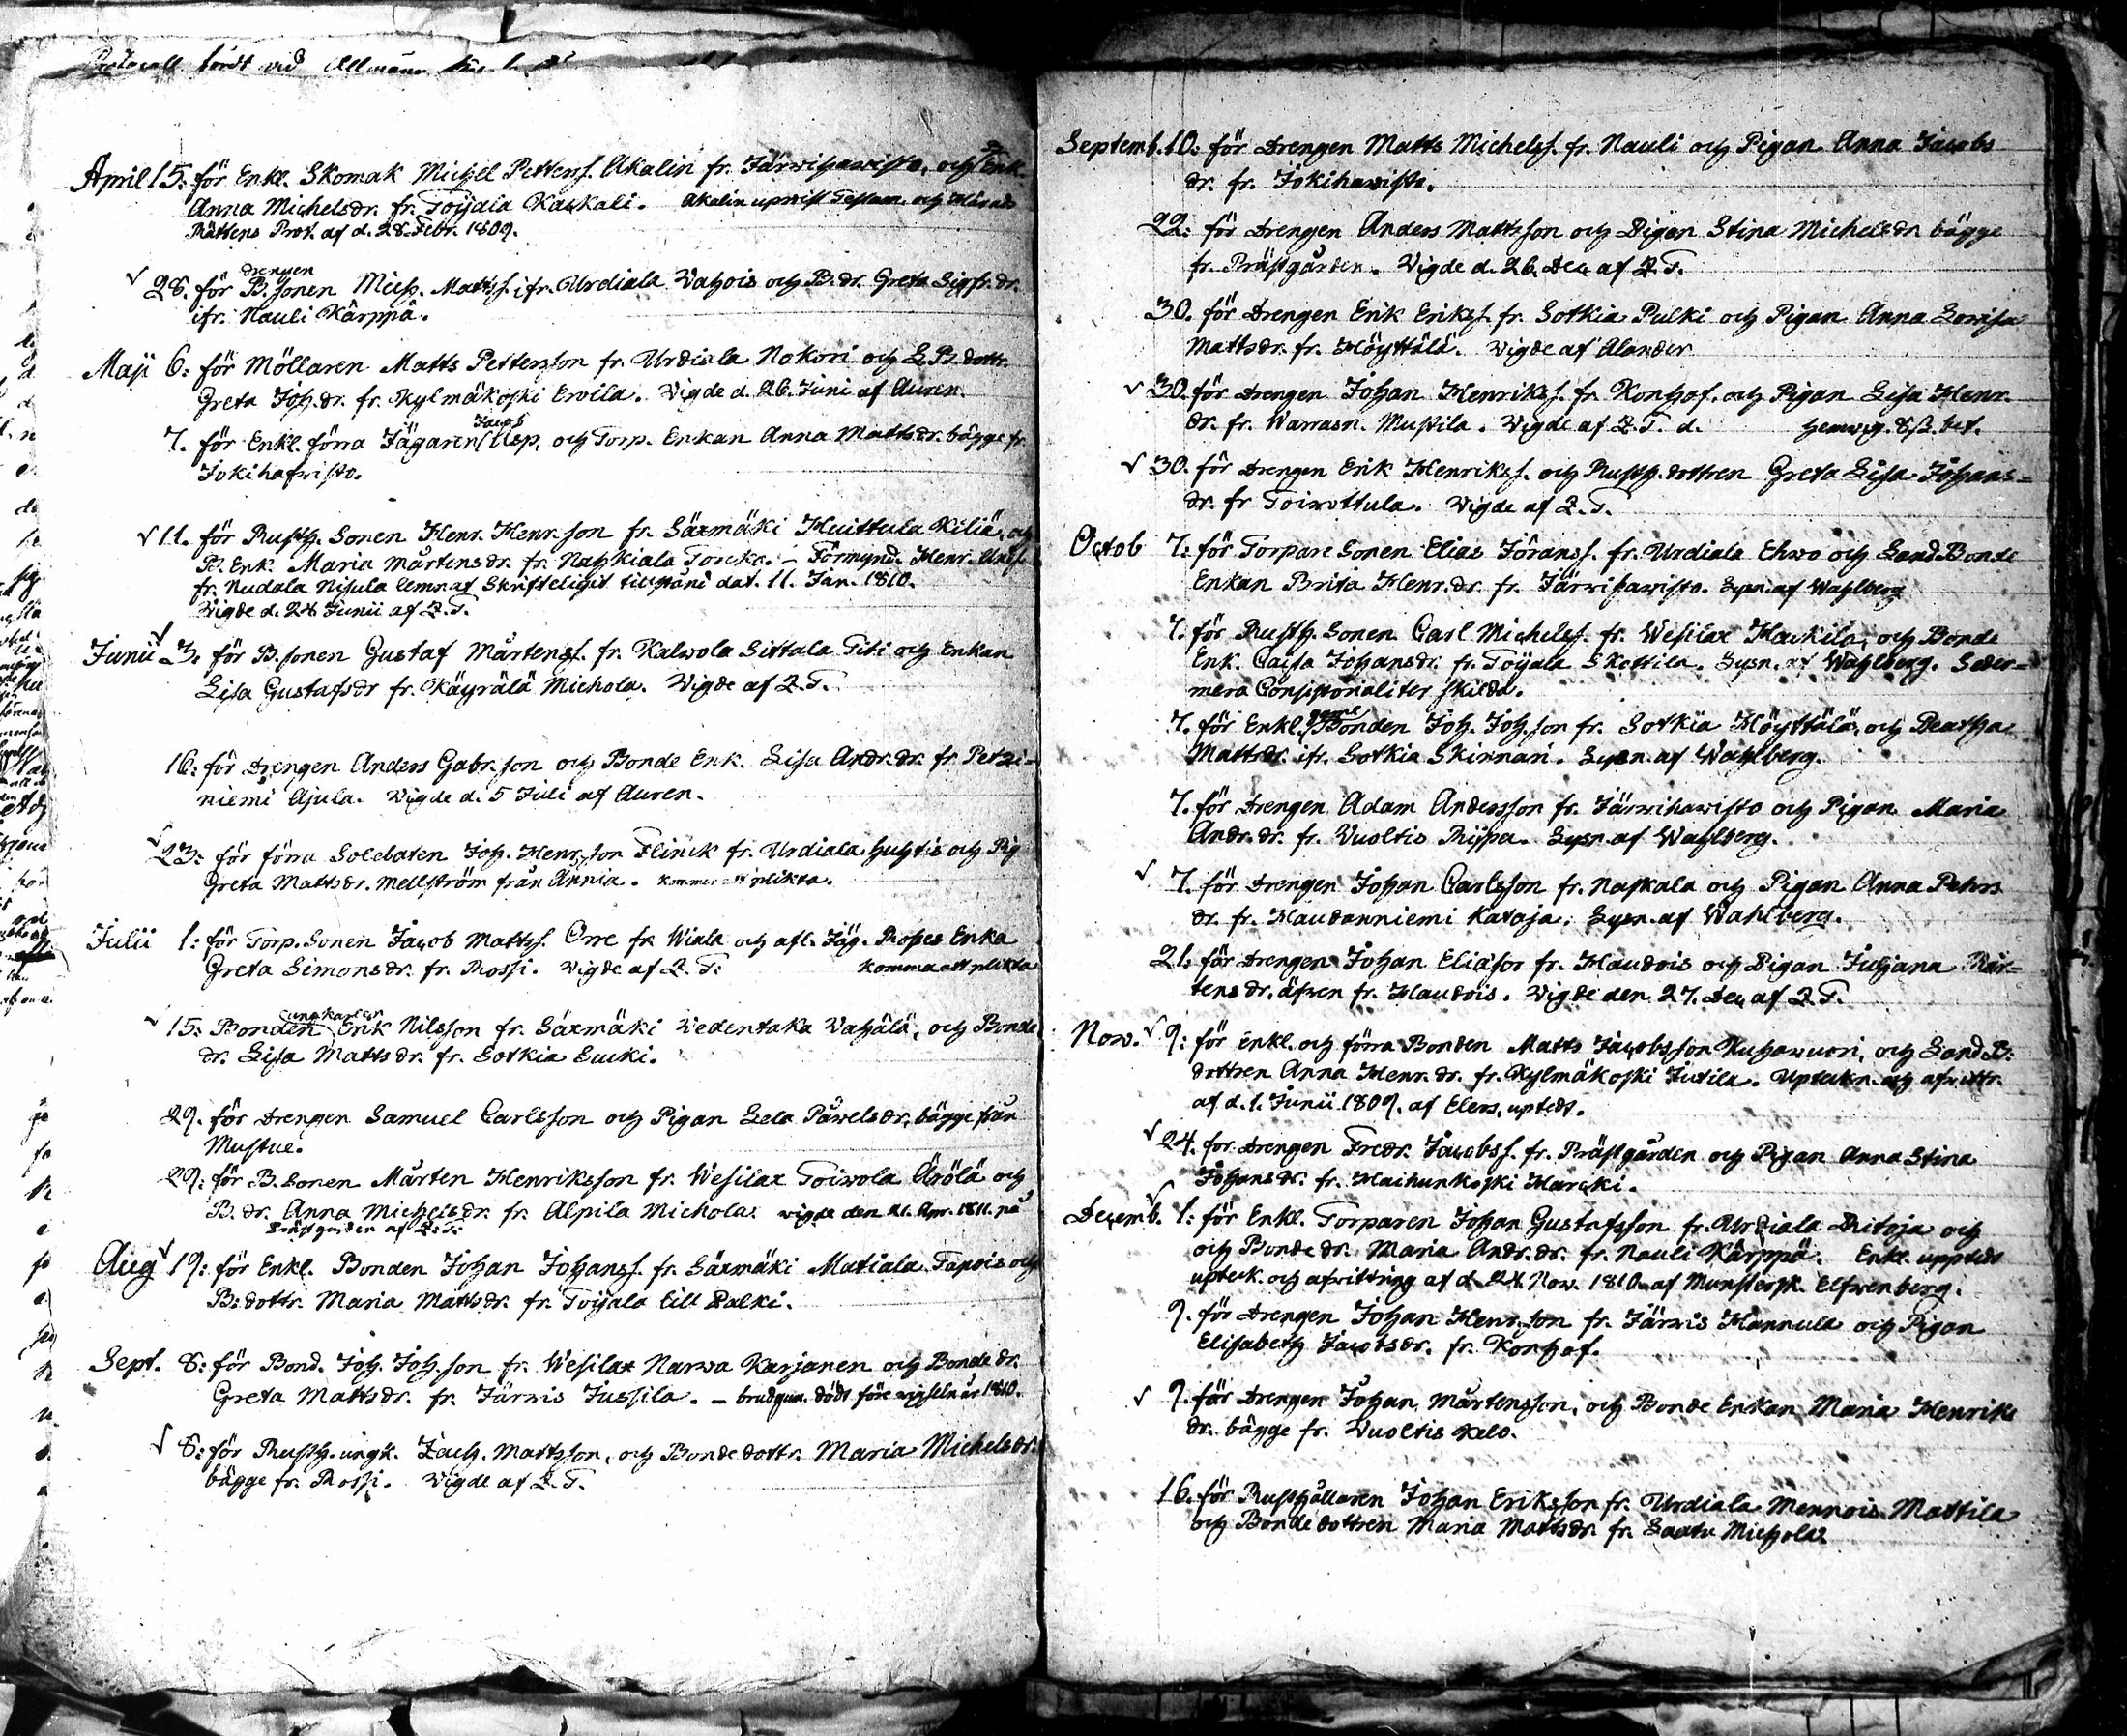 Protocall fördt vid Allmänn
April 15. för Enkl. Skomak Michel Petterss. Akalin fr. Järwihawisto, och Enk.
Anna Michelsdr. fr. Toijala Kaskali. Akalin upwist Testam. och Härads
Rättens Prot. af d. 28 Febr. 1809.
drengen
√ 28. för B. sonen Mich. Mattss. ifr. Urdiala Wahois och B. dr. Greta Sigfr. dr.
ifr. Nauli Kärppä.
Maji 6: för Möllaren Matts Pettersson fr. Urdiala Nokori och L B. dottr.
Greta Joh. dr. fr. Kylmäkoski Erwila. Vigde d. 26. Juni af Auren.
Jacob
7. för Enkl. förra Jägaren Asp, och Torp. Enkan Anna Mattsdr. bägge fr.
Jokihafvisto.
√ 11. för Rusth. Sonen Henr. Henr.son fr. Säxmäki Huittula Kiliä, och
B. Enk. Maria Mårtensdr. fr. Nahkiala Torcko. – Förmynd. Henr.
fr. Nudala Nisula lemnat Skrifteligit tillstånd dat. 11. Jan. 1810.
Vigde d. 24 Junii af Z. T.
Junii √ 3. för B. sonen Gustaf Mårtenss. fr. Kalwola Sittala Titi och Enkan
Lisa Gustafsdr fr. Käyrälä Michola. Vigde af Z. T.
16: för Drengen Anders Gabr.son och Bonde Enk. Lisa Andr. dr. fr. Petzi-
niemi Ajula. Vigde d. 5 Juli af Auren.
√ 23: för förra Soldaten Joh. Henr.son Flinck fr. Urdiala Huhtis och Pig
Greta Mattsdr. Mellström från Annia. Kommer att plikta.
Julii 1: för Torp. Sonen Jacob Mattss. Orre fr. Wiala och afl. Jäg. Roses Enka
Greta Simonsdr. fr. Rossi. Vigde af Z. T. Komma att plikta
ungkarlen
√ 15: Bonden Erik Nilsson fr. Säxmäki Wedentaka Wahälä, och Bonde
dr. Lisa Mattsdr. fr. Sotkia Sucki.
29. för Drengen Samuel Carlsson och Pigan Lela Påwelsdr, bägge från
Mustue.
29: för B. Sonen Mårten Henriksson fr. Wesilax Toiwola Ärölä och
B. dr. Anna Michelsdr. fr. Alpila Michola. vigde den 21. Apr. 1811. på
Prästgården af Z. T.
Aug √ 19: för Enkl. Bonden Johan Johanss. fr. Säxmäki Matiala Tapois och
B: dottr. Maria Mattsdr. fr. Toijala Lill Palki.
Sept. 8: för Bond. Joh. Joh.son fr. Wesilax Narwa Karjanen och Bonde dr.
Greta Mattsdr. fr. Järwis Jussila. – brudgum. död före vigseln år 1810.
√ 8: för Rusth. ungk. Zach. Mattsson, och Bonde dottr. Maria Michelsdr.
bägge fr. Rossi. Vigde af Z. T.
Septemb. 10: för Drengen Matts Michelss. fr. Nauli och Pigan Anna Jacobs
dr. fr. Jokihawisto.
22: för Drengen Anders Mattsson och Pigan Stina Michelsdr. bägge
fr. Prästgården. Vigde d. 26. Dec af Z. T.
30. för Drengen Erik Erikss. fr. Sotkia Pulki och Pigan Anna Lovisa
Mattsdr. fr. Höyttälä. Vigde af Alander
√ 30. för Drengen Johan Henrikss. fr. Konhof. och Pigan Lisa Henr.
dr. fr. Warrasn. Mustila. Vigde af Z. T. d.
√ 30. för Drengen Erik Henrikss. och Rusth. dottren Greta Lisa Johans-
dr. fr Toiwottula. Vigde af Z. T.
Octob 7: för Torpare Sonen Elias Jöranss. fr. Urdiala Ehwo och Land Bonde
Enkan Brita Henr. dr. fr. Järwihawisto. Lysn. af Wahlberg
7. för Rusth. Sonen Carl Michelss. fr. Wesilax Haukila, och Bonde
Enk. Caisa Johansdr. fr. Toijala Skottila. Lysn. af Wahlberg. Seder-
mera Consistorialiter skilda.
gamle
7. för Enkl. Bonden Joh. Joh.son fr. Sotkia Höyttälä, och Beatha
Mattsdr. ifr. Sotkia Skinnari. Lysn. af Wahlberg.
7. för Drengen Adam Andersson fr. Järwihawisto och Pigan Maria
Andr. dr. fr. Vuoltis Rippa. Lysn. af Wahlberg.
√ 7. för Drengen Johan Carlsson fr. Naskala och Pigan Anna Pehrs
dr. fr. Haudanniemi Kataja. Lysn. af Wahlberg.
21. för Drengen Johan Eliasson fr. Haudois och Pigan Juliana Mår-
tens dr. äfwen fr. Haudois. Vigde den 27. Dec af Z. T.
Nov. √ 9: för Enkl. och förra Bonden Matts Jacobsson Kuhawuori, och Land B.
dottren Anna Henr. dr. fr. Kylmäkoski Jutila. Uptekn. och afvittr.
af d. 1. Junii 1809. af Elers. uptedt.
√ 24. för Drengen Fredr. Jacobss. fr. Prästgården och Pigan Anna Stina
Johansdr. fr. Maihunkoski Marcki.
Decemb. √ 1: för Enkl. Torparen Johan Gustafsson fr. Urdiala Ritoja och
och Bonde dr. Maria Andr. dr. fr. Nauli Kärppä. Enkl. upptedt
upteck. och afvittring af d. 24 Nov. 1810. af Munstersk. Elfvenberg.
9. för Drengen Johan Henr.son fr. Järwis Hannula och Pigan
Elisabeth Jacobsdr. fr. Konhof.
√ 9. för Drengen Johan Mårtensson, och Bonde Enkan Maria Henriks
dr. bägge fr. Vuoltis Kelo.
16. för Rusthållaren Johan Eriksson fr. Urdiala Mennois Mattila
och Bonde dottren Maria Mattsdr. fr. Saatu Michola.